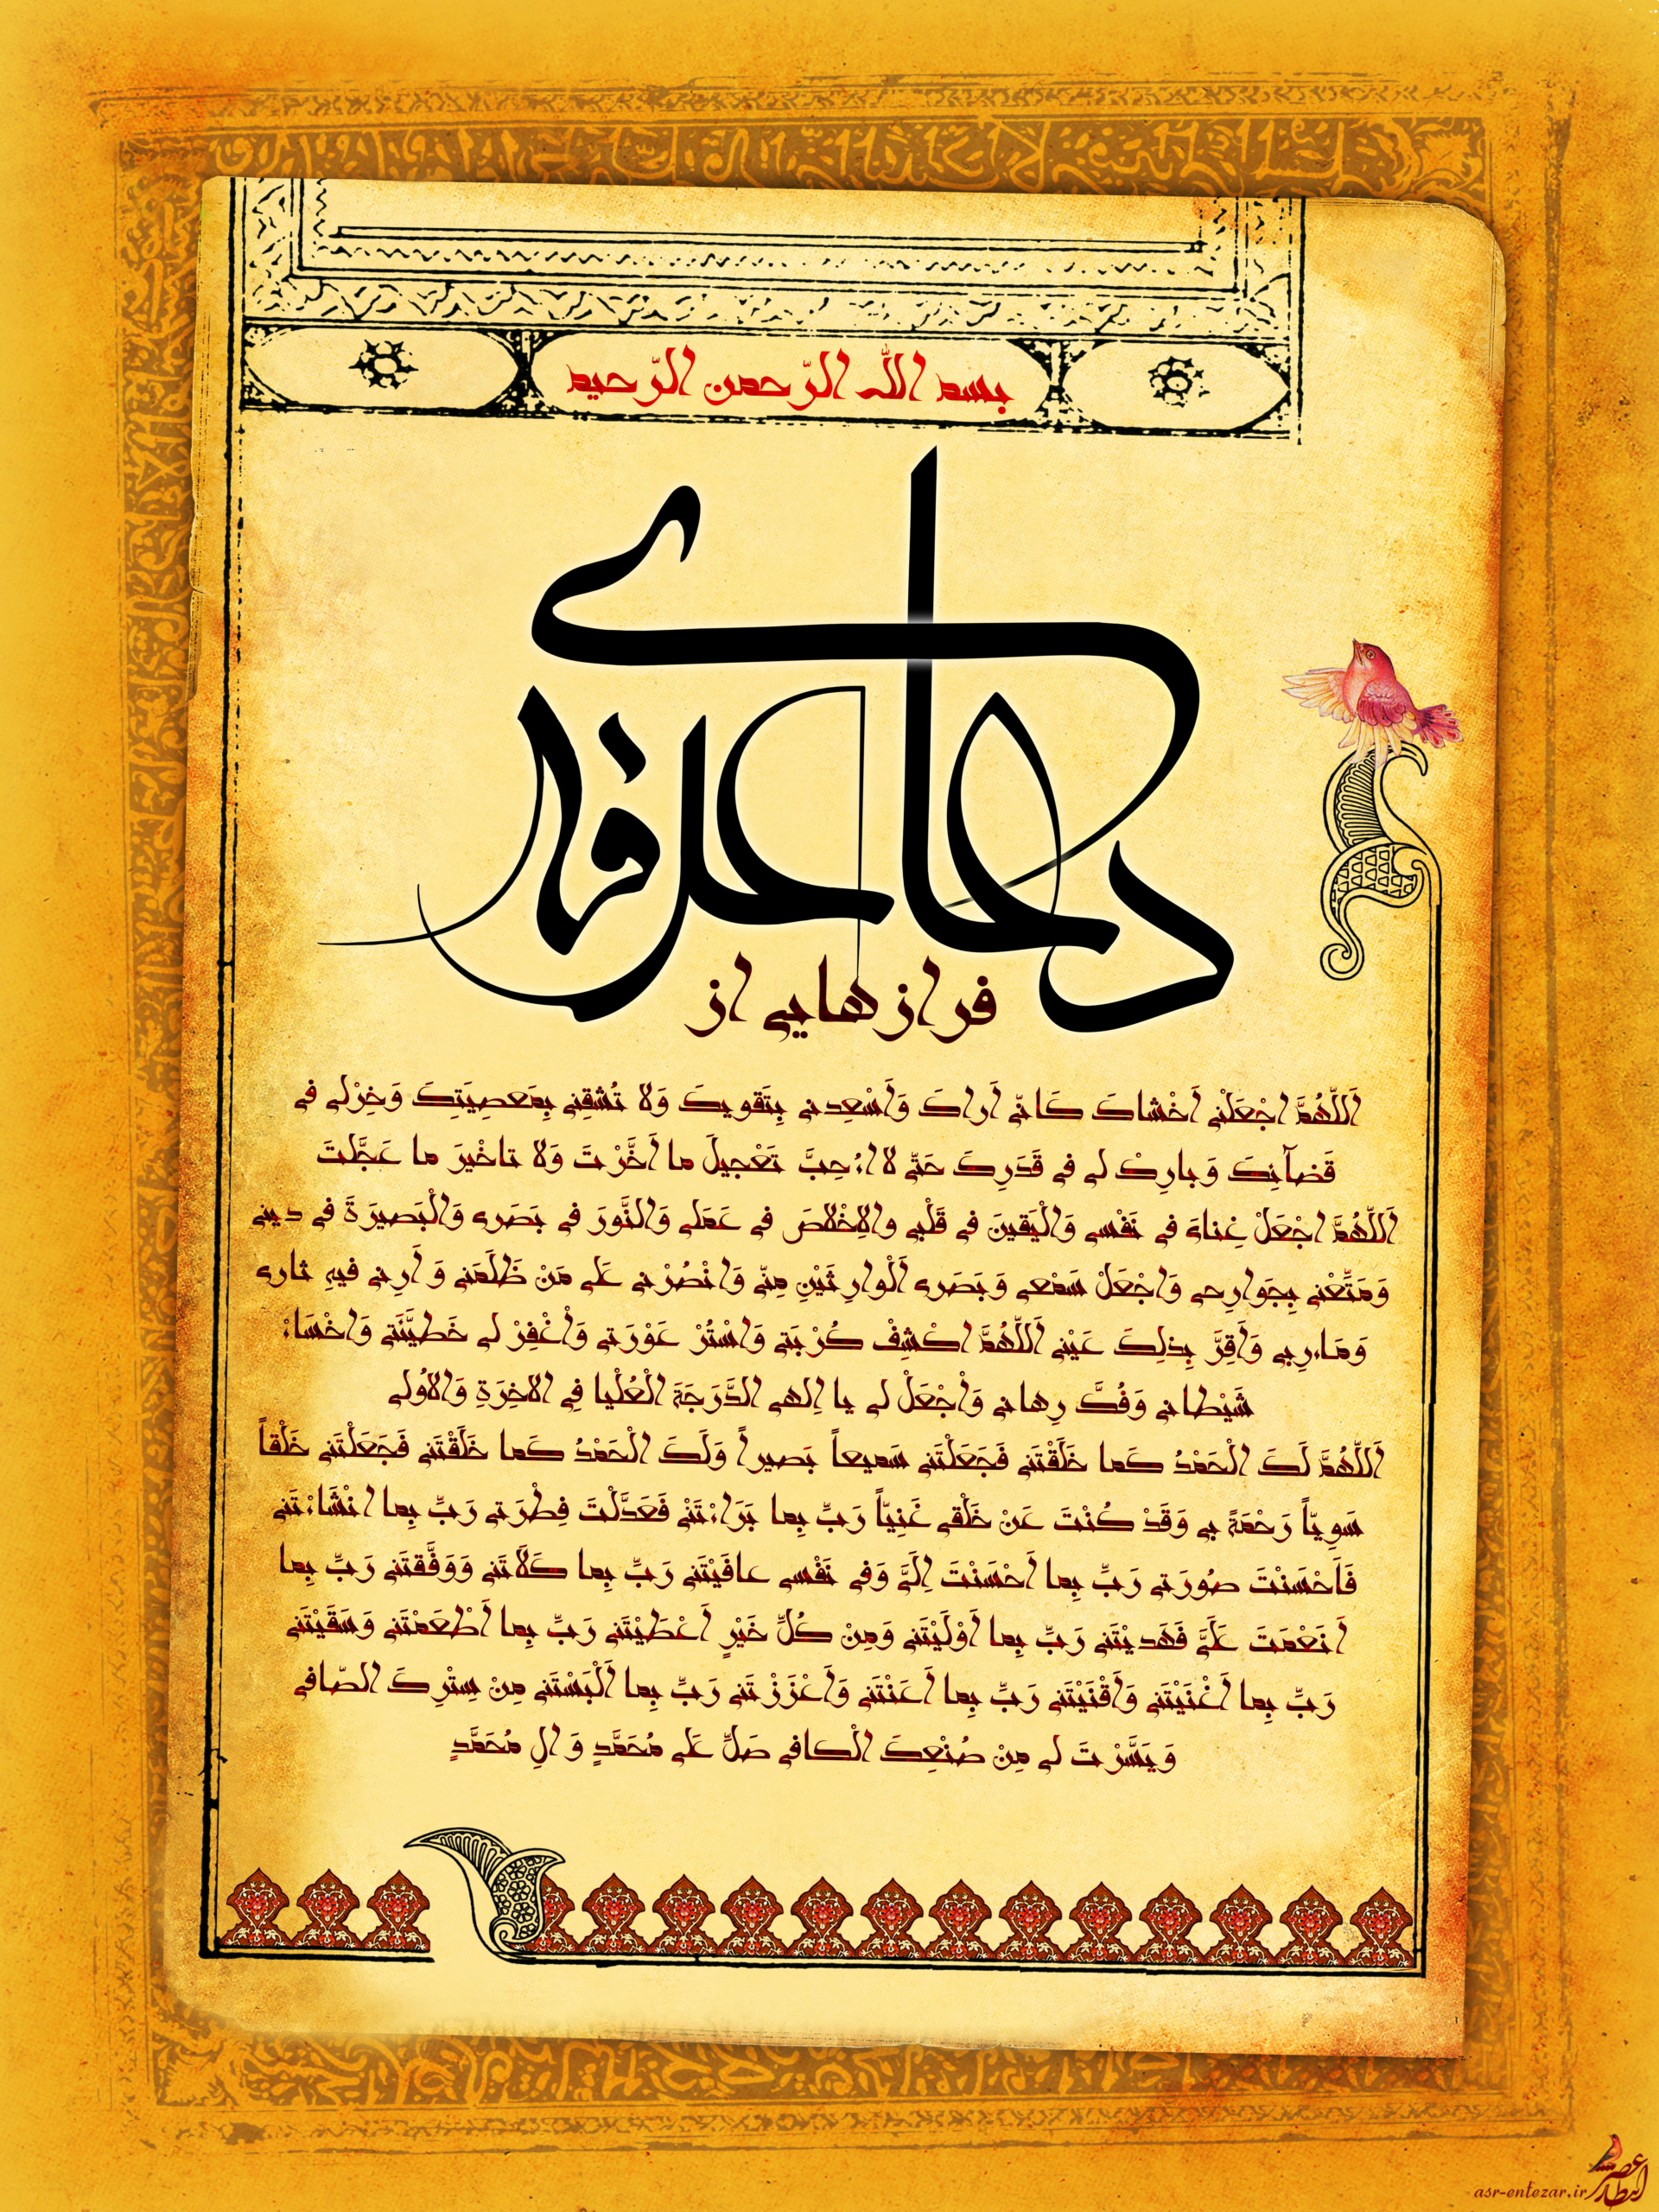 بسم الله الرّحمن الرّحیم
دعای عرفه
فرازهایی از
اَللّهُمَّ اجْعَلْنی اَخْشاکَ کَانّی اَراکَ وَاَسْعِدنی بِتَقویکَ وَلا تُشْقِنی بِمَعصِیَتِکَ وَخِرْلی فی
قَضآئِکَ وَبارِکْ لی فی قَدَرِکَ حَتّی لا اءُحِبَّ تَعْجیلَ ما اَخَّرْتَ وَلا تاخْیرَ ما عَجَّلتَ
اَللّهُمَّ اجْعَلْ غِنایَ فی نَفْسی وَالْیَقینَ فی قَلْبی والاِخْلاصَ فی عَمَلی وَالنَّورَ فی بَصَری وَالْبَصیرَةَ فی دینی
وَمَتِّعْنی بِجَوارِحی وَاجْعَلْ سَمْعی وَبَصَری اَلْوارِثَیْنِ مِنّی وَانْصُرْنی عَلی مَنْ ظَلَمَنی وَاَرِنی فیهِ ثاری
وَمَـاءرِبی وَاَقِرَّ بِذلِکَ عَیْنی اَللّهُمَّ اکْشِفْ کُرْبَتی وَاسْتُرْ عَوْرَتی وَاْغْفِرْ لی خَطیَّئَتی وَاخْسَاءْ
شَیْطانی وَفُکَّ رِهانی وَاْجْعَلْ لی یا اِلهی الدَّرَجَةَ الْعُلْیا فِی الاخِرَةِ وَالاُولی
اَللّهُمَّ لَکَ الْحَمْدُ کَما خَلَقْتَنی فَجَعَلْتَنی سَمیعاً بَصیراً وَلَکَ الْحَمْدُ کَما خَلَقْتَنی فَجَعَلْتَنی خَلْقاً
سَوِیّاً رَحْمَةً بی وَقَدْ کُنْتَ عَنْ خَلْقی غَنِیّاً رَبِّ بِما بَرَاءْتَنْی فَعَدَّلْتَ فِطْرَتی رَبِّ بِما انْشَاءْتَنی
فَاَحْسَنْتَ صُورَتی رَبِّ بِما اَحْسَنْتَ اِلَیَّ وَفی نَفْسی عافَیْتَنی رَبِّ بِما کَلاَتَنی وَوَفَّقتَنی رَبِّ بِما
انَعْمَتَ عَلَیَّ فَهَدیْتَنی رَبِّ بِما اَوْلَیْتَنی وَمِنْ کُلِّ خَیْرٍ اَعْطَیْتَنی رَبِّ بِما اَطْعَمْتَنی وَسَقَیْتَنی
رَبِّ بِما اَغْنَیْتَنی وَاَقْنَیْتَنی رَبِّ بِما اَعَنْتَنی وَاَعْزَزْتَنی رَبِّ بِما اَلْبَسْتَنی مِنْ سِتْرِکَ الصّافی
وَیَسَّرْتَ لی مِنْ صُنْعِکَ الْکافی صَلِّ عَلی مُحَمَّدٍ وَالِ مُحَمَّدٍ
عصر انتظار
asr-entezar.ir